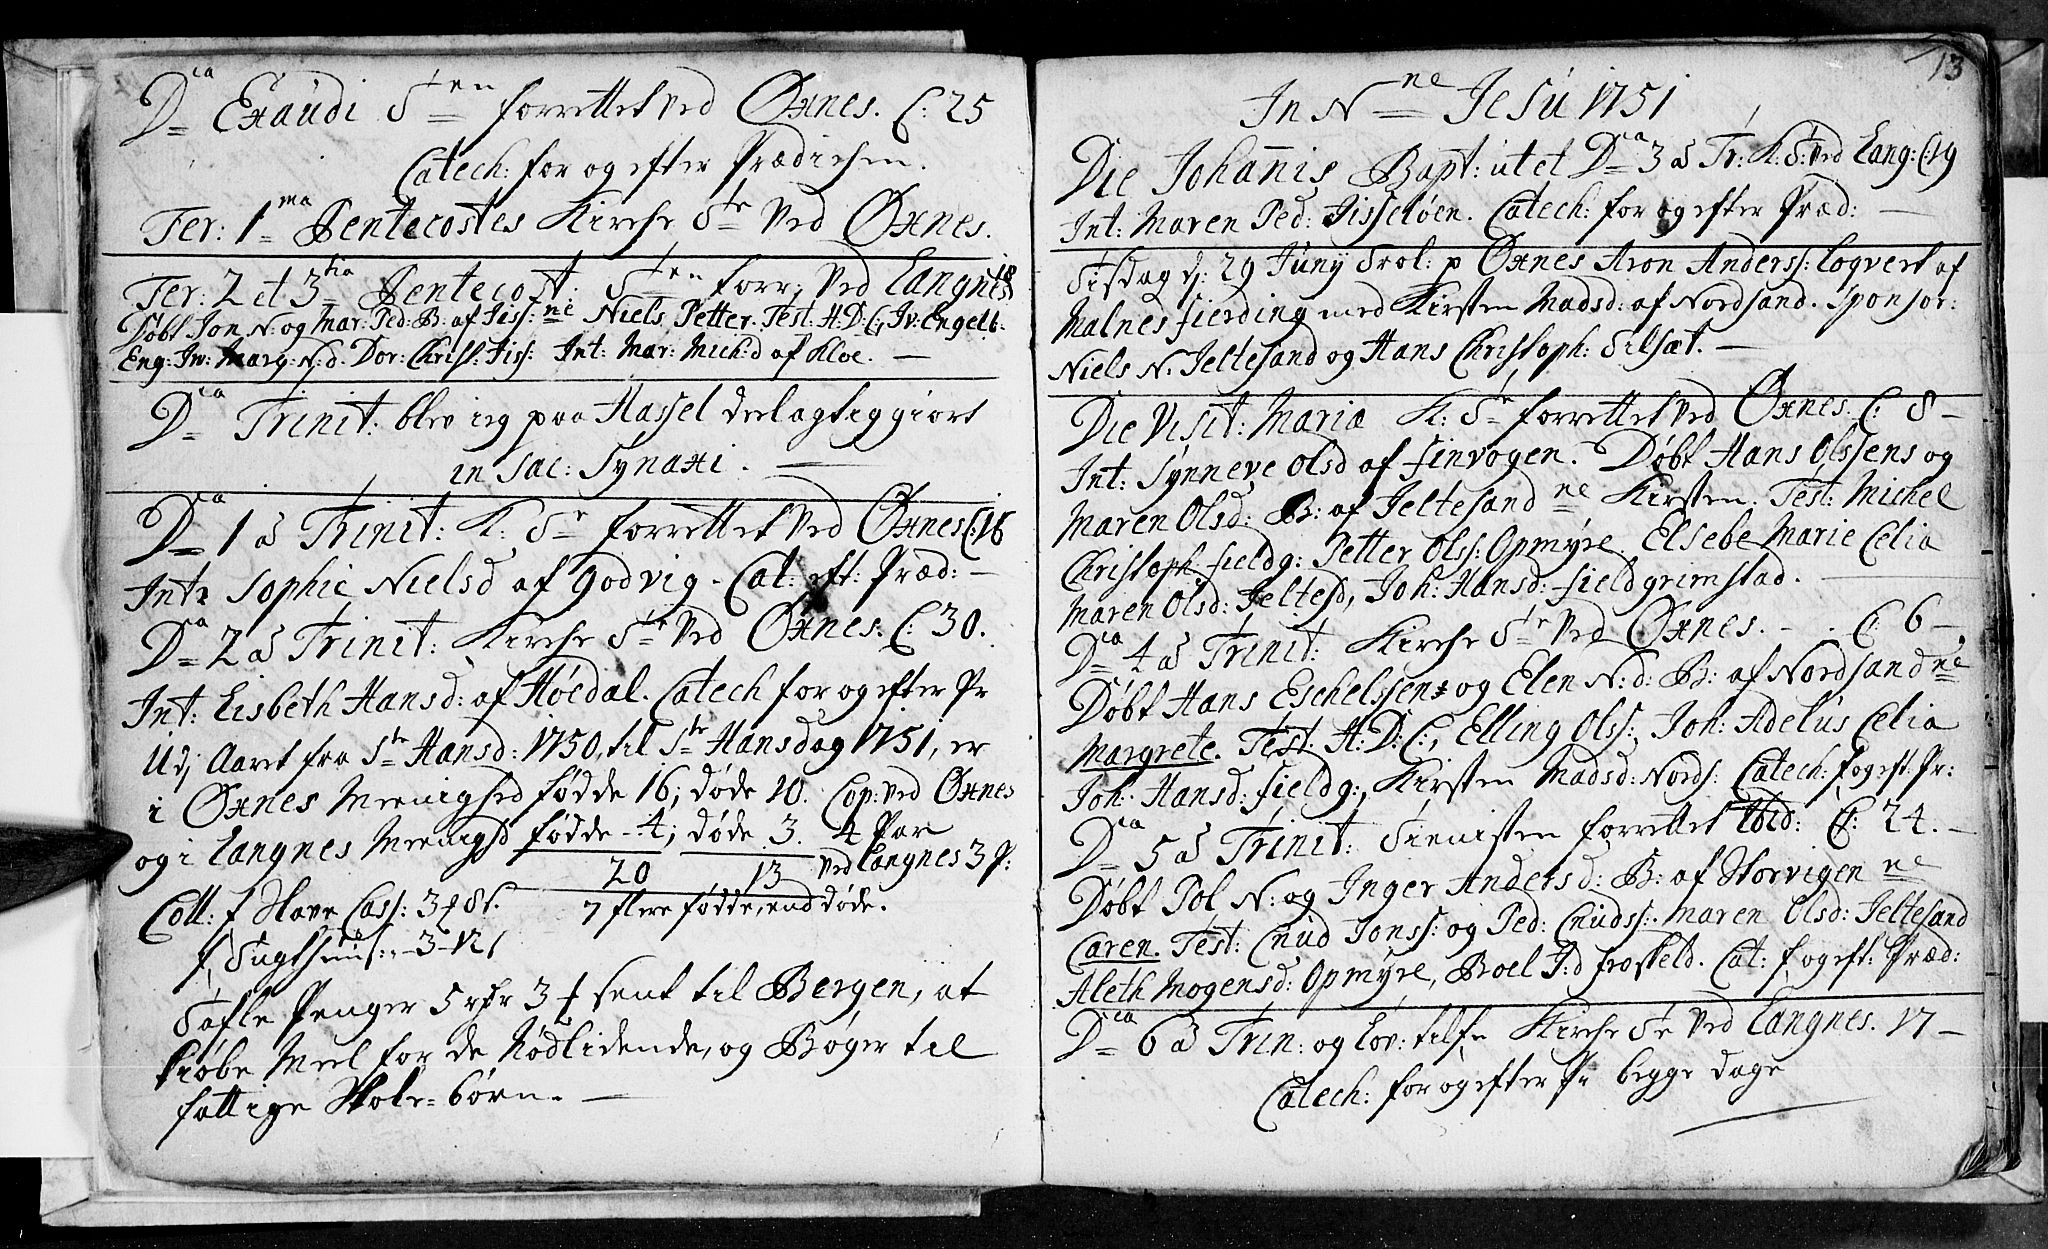 Dca Exaudi Sten forrettet ved Øxnes. C: 25
Catech: for og efter Prædichen.
Fer: 1ma Pentecostes Kirche Ste ved Øxnes.
Fer: 2 et 3tia Pentecost: Sten forr: ved Langnes 18
Døbt Jon N: og Mar: Ped: B: af Tiss: ne Niels Petter. Test: H: D: C; Iv: Engelb:
Eng: Iv: Marg: N: d. Dor: Christ: Tiss: Int: Mar: Mich:d af Kloe. —
Dca Trinit: blev ieg paa Hassel deelagtiggiort
in Sac: Synaxi. —
Dca 1 a Trinit: K: Se forrettet ved Øxnes C: 16
Intr Sophie Nielsd af Godvig - Cat: eft: Præd: —
Dca 2 a Trinit: Kirche Ste ved Øxnes. C: 30.
Int: Lisbeth Hansd: af Høedal. Catech for og efter Pr
Udj Aaret fra Ste Hansd: 1750, til Ste Hansdag 1751, er
i Øxnes Meenighed fødde 16; døde 10. Cop: ved Øxnes
og i Langnes Meenighd fødde - 4; døde 3. 4 Par
20 13 ved Langnes 3 P:
Coll: f Slave Cass: 3 f 8 s. 7 flere fødde, end døde.
f Sugehuus: - 3 - 12 s
Tafle Penger 5 rdr 3 f sent til Bergen, at
kiøbe Meel for de Nødlidende, og Bøger til
fattige Skole-børn. —
13
In Nne Jesu 1751
Die Johannis Bapt: ut et Dca 3 a Tr: K: S: ved Lang: C: 19
Int: Maren Ped: Tisseløen. Catech: for og efter Præd: —
Tisdag d: 29 Juny Trol: p Øxnes Aron Anderss: Loqvert af
Malnes fierding med Kirsten Madsd: af Nordsand. Sponsor:
Niels N. Jeltesand og Hans Christoph: Silsæt. —
Die Visit: Mariæ K: Ste forrettet ved Øxnes. C: 8 —
Int: Synneve Olsd af finvogen. Døbt Hans Olssens og
Maren Olsd: B: af Jeltesand ne Kirsten. Test: Michel
Christoph fieldg: Petter Olss: Opmyre. Elsebe Marie Celia
Maren Olsd: Jeltesd, Joh: Hansd: fieldgrimstad. —
Dca 4 a Trinit: Kirche Ste ved Øxnes. - . C: 6 —
Døbt Hans Eschelssens og Elen N: d: B: af Nordsand ne
Margrete. Test: H: D: C:, Elling Olss: Joh: Adelus Celia
Joh: Hansd: fieldg:, Kirsten Madsd: Nords: Catech: f og eft Pr:
Dca 5 a Trinit: Tienisten forrettet Ibid: C: 24. —
Døbt Pol N: og Inger Andersd: B: af Skorvigen ne
Caren. Test: Cnud Jonss: og Ped: Cnudss: Maren Olsd: Jeltesand
Aleth Mogensd: Opmyre, Boel I:d froskeld. Cat: f og eft: Præd:
Dca 6 a Trin: og Løv: tilfn Kirche Se ved Langnes. 17 —
Catech: for og efter Pr begge dage